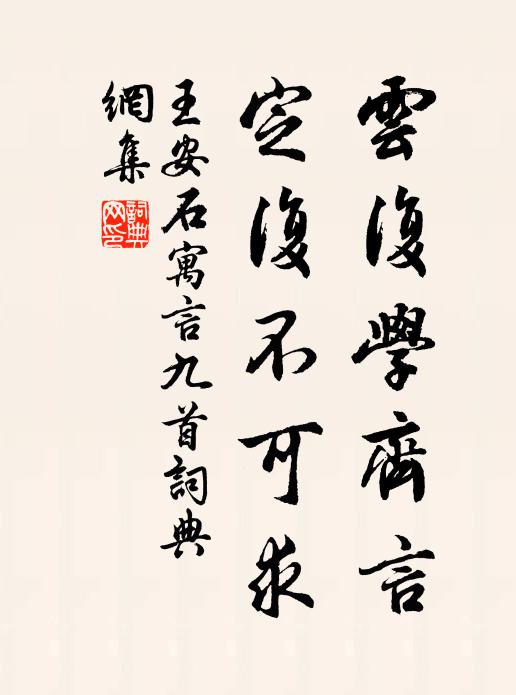 雲復學齊言
定復不可求
王安石寓言九首詞典
網集
詞典網印